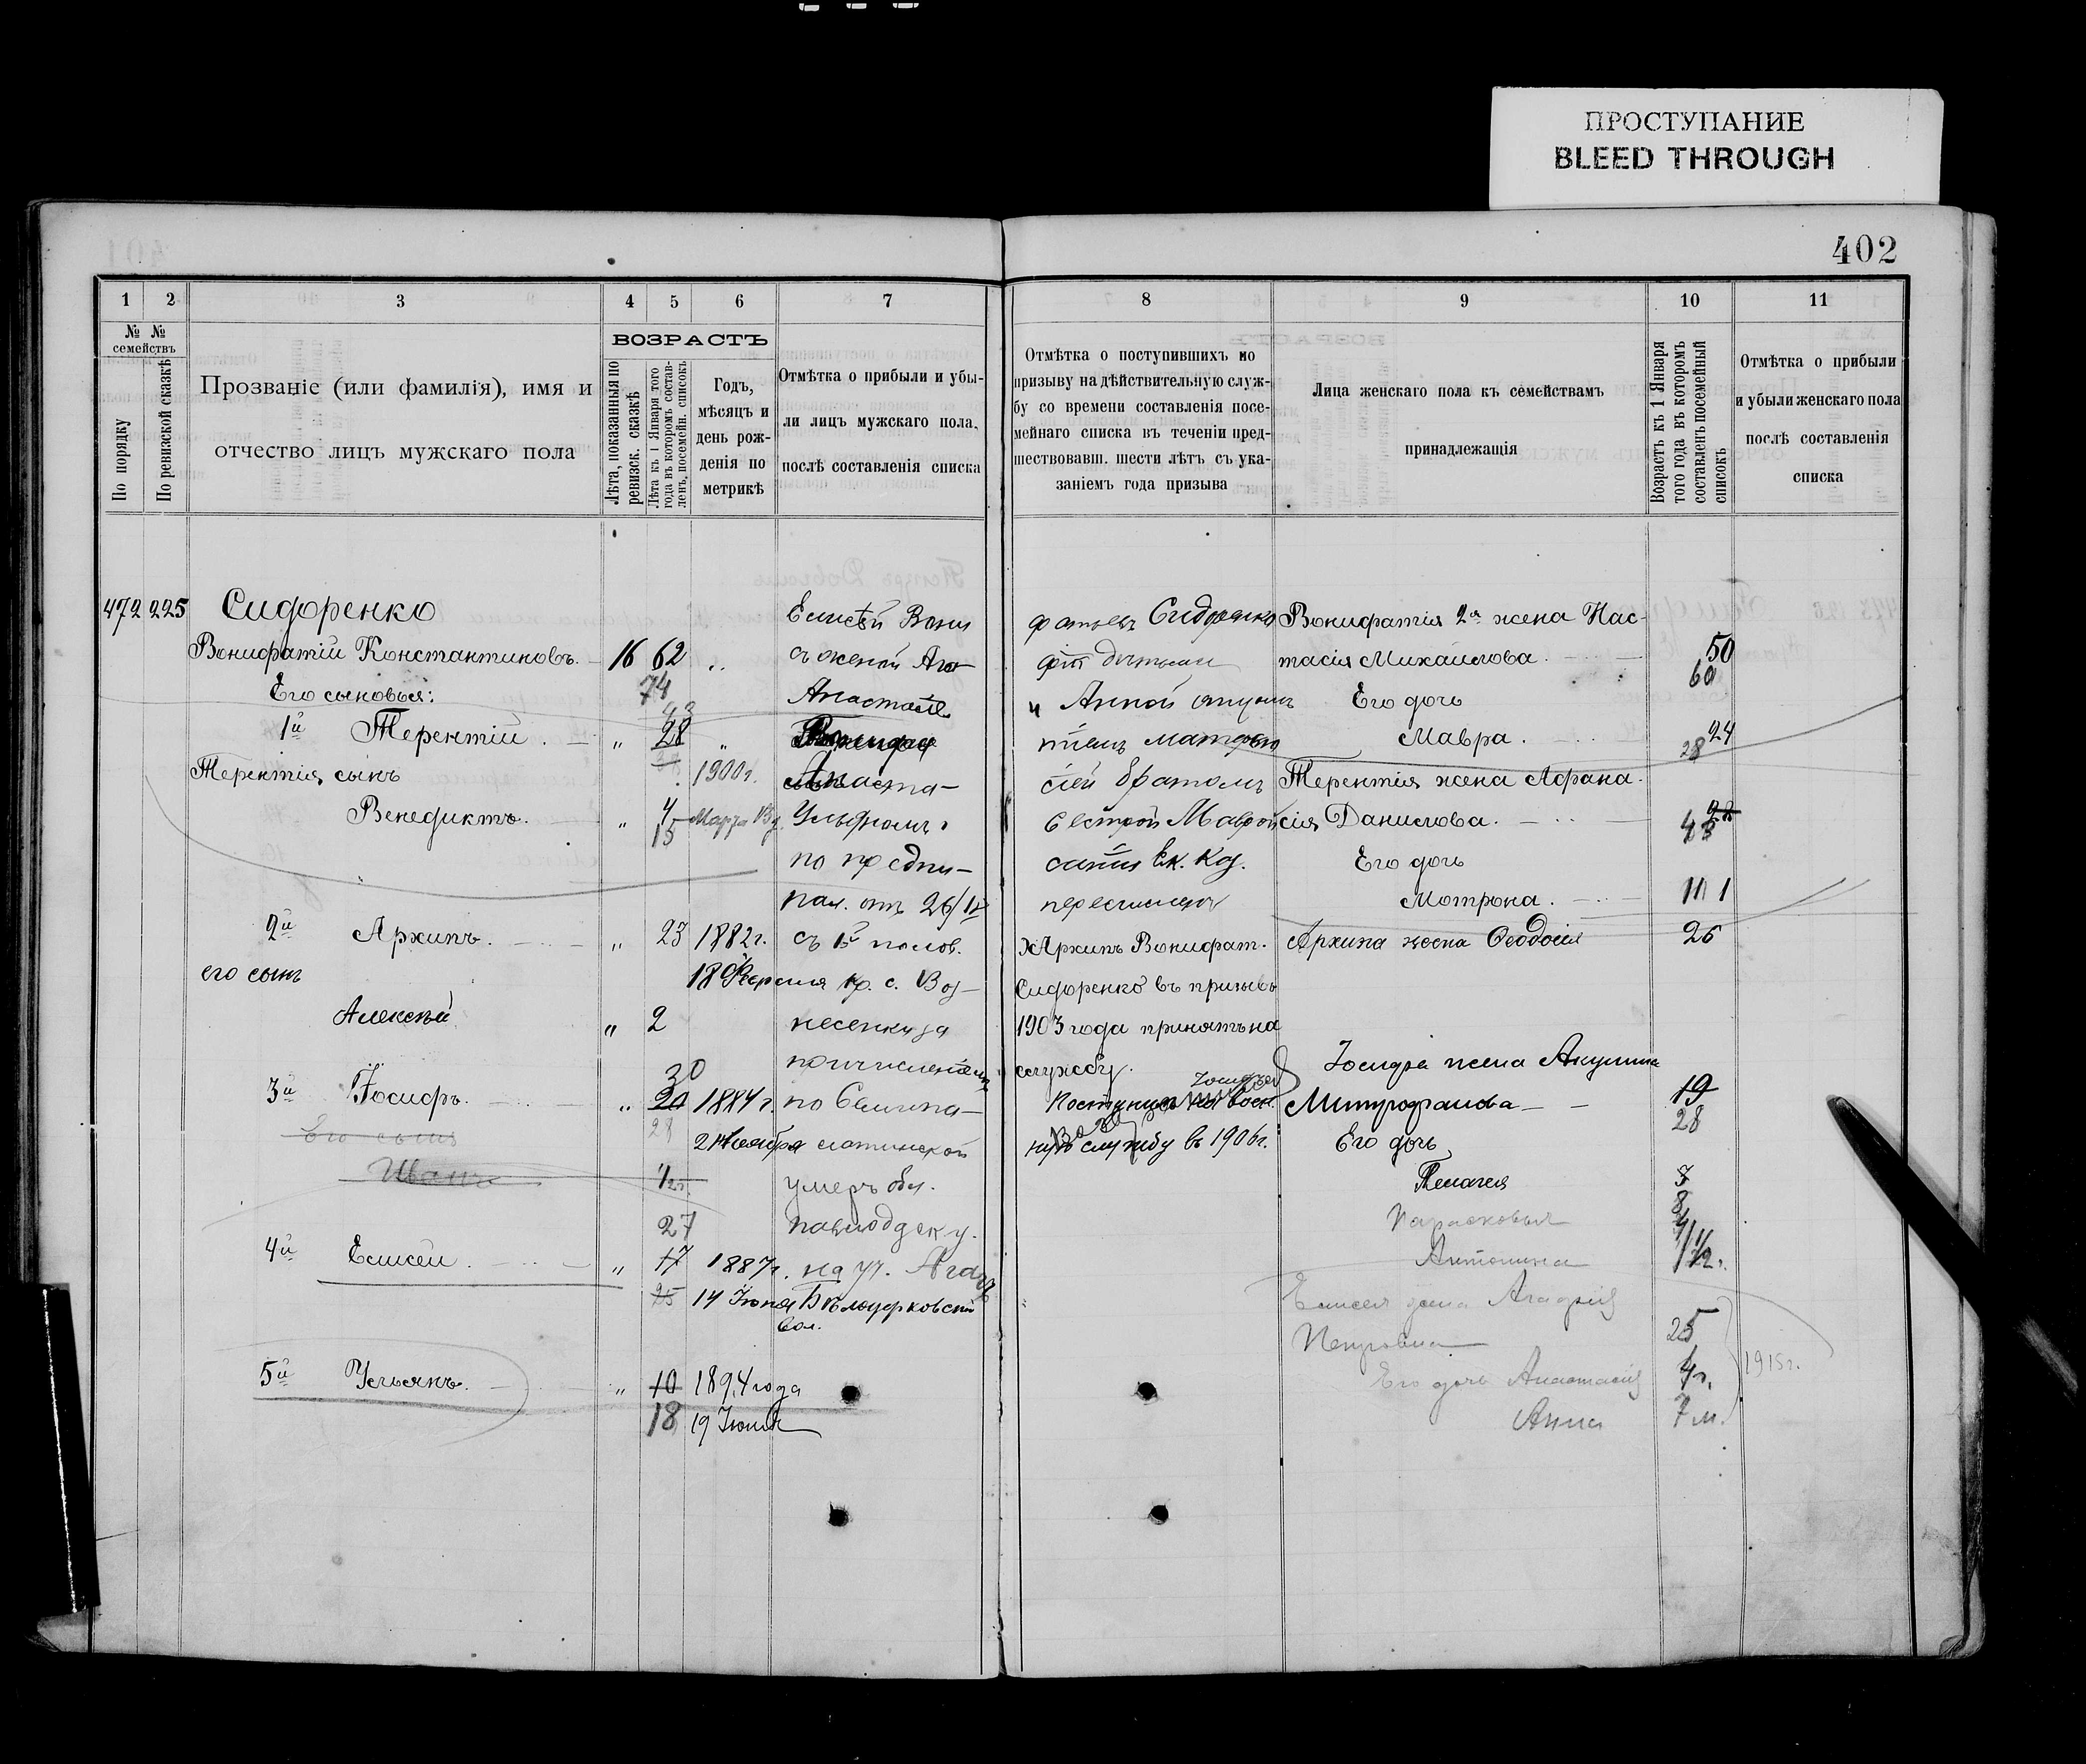 ПРОСТУПАНИЕ
BLEED THROUGH
402
1 2 3 4 5 6 7
№ № семействъ
По порядку
По ревизской сказкѣ
Прозваніе (или фамилія), имя и
отчество лицъ мужскаго пола
ВОЗРАСТЪ
Лѣта, показанныя по
ревизск. сказкѣ
Лѣта къ 1 Января того
года въ которомъ состав-
ленъ посемейн. списокъ
Годъ,
мѣсяцъ и
день рож-
денія по
метрикѣ
Отмѣтка о прибыли и убы-
ли лицъ мужскаго пола,
послѣ составленія списка
472 225 Сидоренко
Вонифатій Константиновъ. 16 62
74
Его сыновья:
43
1й Терентій. " 28 "
Терентія сынъ 1900г.
Венедиктъ. " 4 Марта
15
2й Архипъ. " 23 1882г.
его сынъ 18 Февраля
Алексѣй " 2
30
3й Іосифъ. " 20 1884г.
Его сынъ 28 21 Ноября
Иванъ 1/2г.
27
4й Елисей. " 17 1887г.
25 14 Іюня
5й Ульянъ. " 10 1894 года
18 19 Іюня
Елисѣй Вони
съ женой Ага
Анастасіе
Ульяномъ
по предпи-
пал. отъ 26/
съ 1й полов.
кр. с. Воз-
несенки за
по Селима-
умеръ
на уч.
Бѣлоцерковской
вол.
8 9 10 11
Отмѣтка о поступившихъ по
призыву на дѣйствительную служ-
бу со времени составленія посе-
мейнаго списка въ теченіи пред-
шествовавш. шести лѣтъ съ ука-
заніемъ года призыва
Лица женскаго пола къ семействамъ
принадлежащія
Возрастъ къ 1 Января
того года въ которомъ
составленъ посемейный
списокъ
Отмѣтка о прибыли
и убыли женскаго пола
послѣ составленія
списка
фатьевъ Сидоренко
фіей дѣтьми
и Анной
братомъ
сестрой Маврой
санія Ек. Ка.
перечислены
Х Архипъ Вонифат.
Сидоренко въ призывъ
1903 года принятъ на
службу.
Іосифъ
Поступилъ на воен.
ную службу въ 1906г.
Вонифатія 2я жена Нас-
тасія Михайлова. 50
60
Его дочь
Мавра. 24
28
Терентія жена Афана-
сія Данилова. 28
43
Его дочь
Мотрона. 11 1
Архипа жена Ѳеодосія 26
Іосифа жена Акулина
Митрофанова 19
28
Его дочь
Пелагея 7
8
Парасковья 4
Антонина 1 1/2.
Елисея жена Агафія
Петровна 25
Его дочь Анастасія 4г.
Анна 7 м.
1915г.